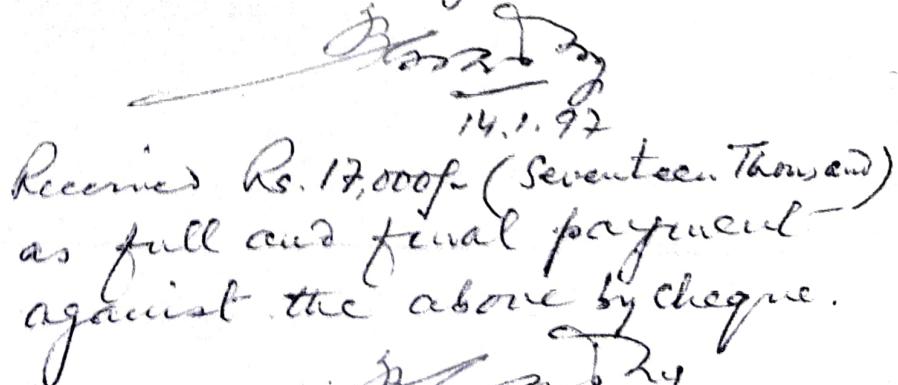 14.1.97
Received Rs. 17,000/- (Seventeen Thousand)
as full and final payment
against the above by cheque.